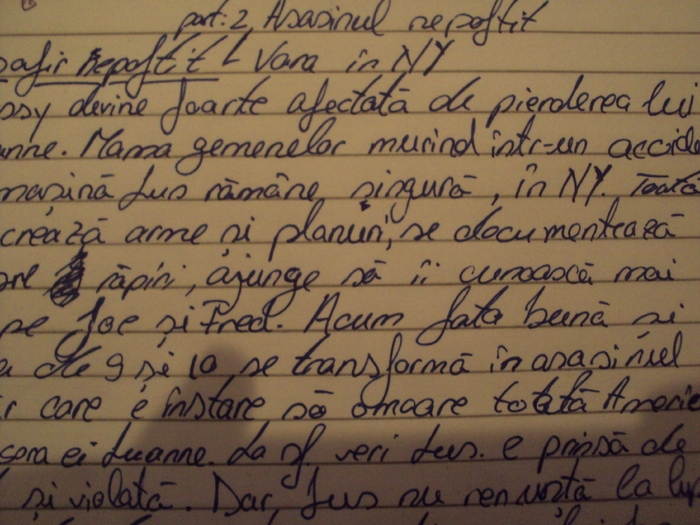 part. 2 Asasinul nepoftit
safir Nepoftit Vara în NY
ssy devine foarte afectată de pierderea lui
anne. Mama gemenelor murind într-un accide
mașină Lus rămâne singură, în NY. Toată
crează arme și planuri, se documentează
pre răpiri, ajunge să îi cunoască mai
pe Joe și Fred. Acum fata bună și
a de 9 și 10 se transformă în asasinul
r care e înstare să omoare totată Americ
sora ei Luanne. La sf verii Lus. e prinsă de
și violată. Dar, Lus nu renunță la lup